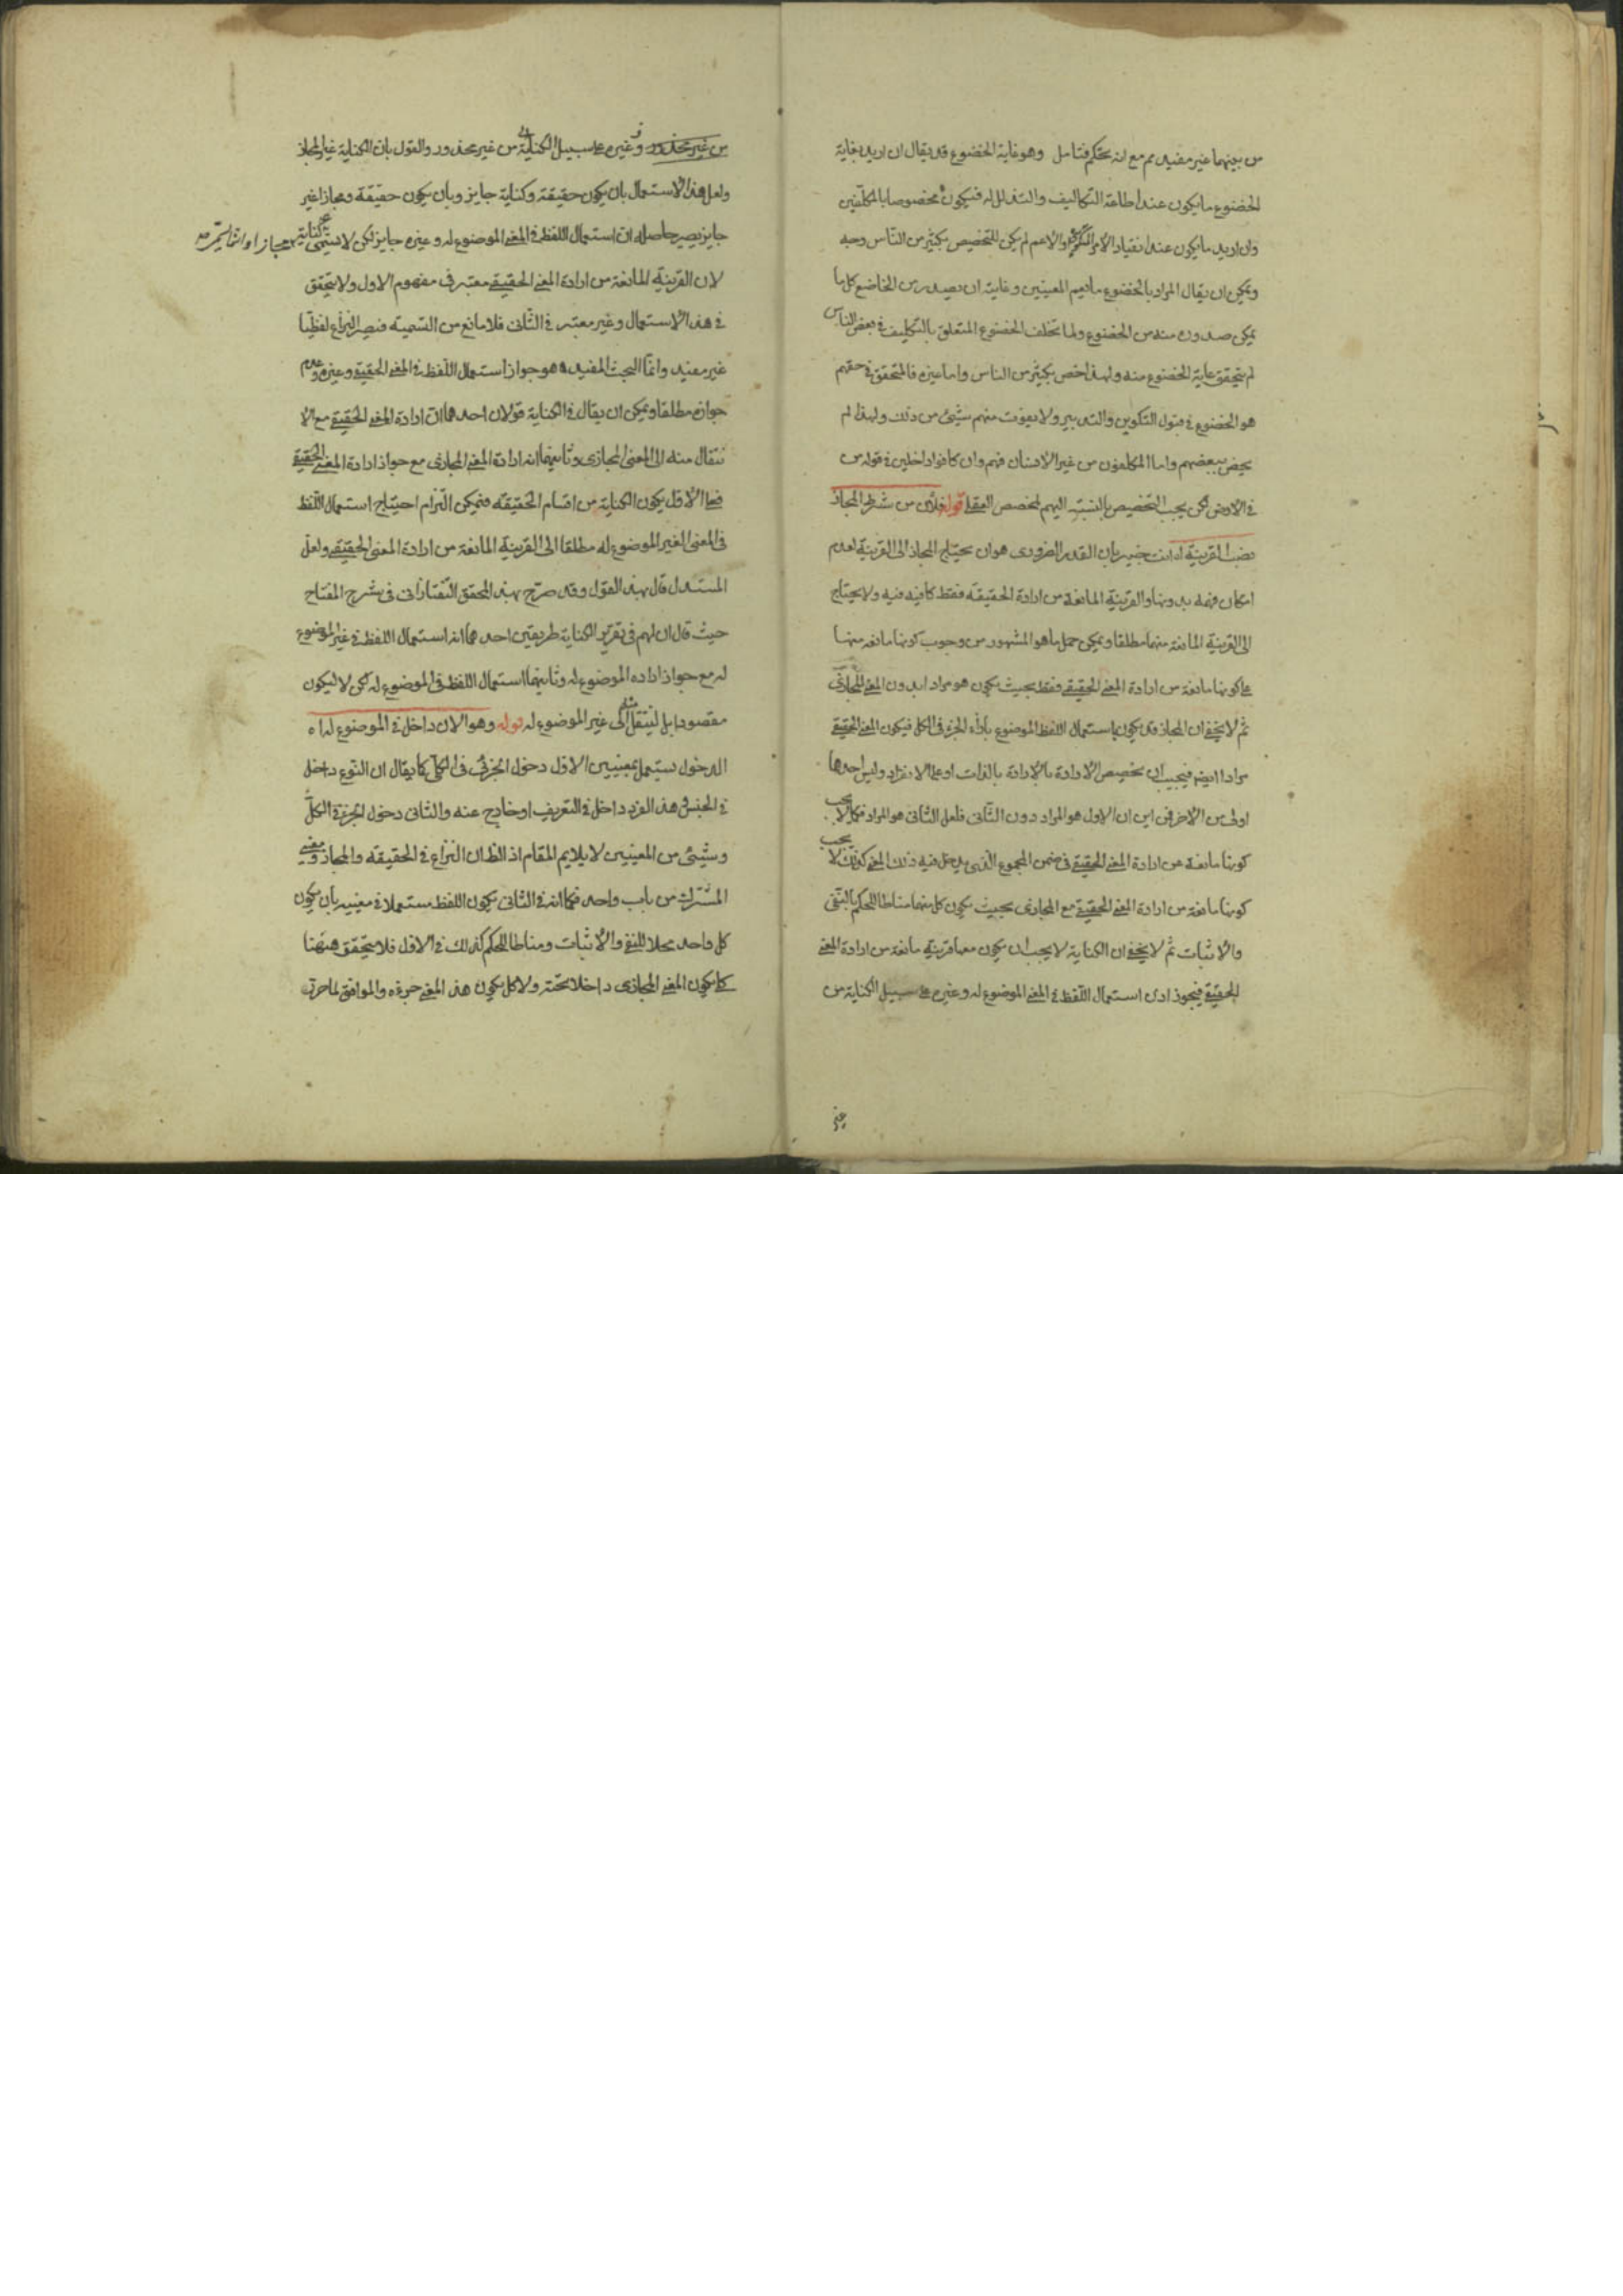 من بينهما غير مفيد مم مع انه تحكم فتامل وهو غاية الخضوع قد يقال ان اريد بغاية
الخضوع ما يكون عند اطاعة التكاليف والتذلل له فيكون مخصوصا بالمكلفين
وان اريد ما يكون عند انقياد الامر والاعم لم يكن للتخصيص بكثير من الناس وجه
ويمكن ان يقال المراد بالخضوع ما يعم المعنيين وغايته ان يصدر من الخاضع كل ما
يمكن صدوره منه من الخضوع ولما تخلف الخضوع المتعلق بالتكليف في بعض الناس
لم يتحقق غاية الخضوع منه ولهذا خص بكثير من الناس واما غيره فالمتحقق في حقهم
هو الخضوع في قبول التكوين والتدبير ولا يفوت منهم شيئ من ذلك ولهذا لم
يخص ببعضهم واما المكلفون من غير الانسان فهم وان كانوا داخلين في قوله من
في الارض لكن يجب التخصيص بالنسبة اليهم لمخصص العقل قوله فلان من شرط المجاز
نصب القرينة انت خبير بان القدر الضرورى هو ان يحتاج المجاز الى القرينة لعدم
امكان فهمه بدونها والقرينة المانعة من ارادة الحقيقة فقط كافية فيه ولا يحتاج
الى القرينة المانعة منهما مطلقا ويمكن حمل ما هو المشهور من وجوب كونها مانعة منها
على كونها مانعة من ارادة المعنى الحقيقي فقط بحيث يكون هو مرادا بدون المعنى المجازى
ثم لا يخفى ان المجاز قد يكون باستعمال اللفظ الموضوع بازاء الجزء في الكل فيكون المعنى الحقيقي
مرادا ايضا فيجب ان يخصص الارادة بالارادة بالذات او على الانفراد وليس احدهما
اولى من الاخر فمن اين ان الاول هو المراد دون الثانى فلعل الثانى هو المراد فكما لا يجب
كونها مانعة من ارادة المعنى الحقيقي في ضمن المجموع الذى يدخل فيه ذلك المعنى كذلك لا يجب
كونها مانعة من ارادة المعنى الحقيقي مع المجازى بحيث يكون كل منهما مناطا للحكم بالنفى
والاثبات ثم لا يخفى ان الكناية لا يجب ان يكون معها قرينة مانعة من ارادة المعنى
الحقيقي فيجوز ان استعمال اللفظ في المعنى الموضوع له وغيره على سبيل الكناية من
من غير محذور وغيره على سبيل الكناية من غير محذور والقول بان الكناية غير المجاز
ولعل هذا الاستعمال بان يكون حقيقة وكناية جايز وبان يكون حقيقة ومجازا غير
جايز يصير حاصله ان استعمال اللفظ في المعنى الموضوع له وغيره جايز لكن لا يسمى كناية
لان القرينة المانعة من ارادة المعنى الحقيقي معتبر في مفهوم الاول ولا يتحقق
في هذا الاستعمال وغير معتبر في الثانى فلا مانع من التسمية فيصير النزاع لفظيا
غير مفيد وانما البحث المفيد هو جواز استعمال اللفظ في المعنى الحقيقي وغيره وعدم
جوازه مطلقا ويمكن ان يقال في الكناية قولان احدهما ان ارادة المعنى الحقيقي مع الا
نتقال منه الى المعنى المجازى وثانيهما انه ارادة المعنى المجازى مع جواز ارادة المعنى الحقيقي
فعلى الاول يكون الكناية من اقسام الحقيقة فيمكن التزام احتياج استعمال اللفظ
فى المعنى الغير الموضوع له مطلقا الى القرينة المانعة من ارادة المعنى الحقيقي ولعل
المستدل قال بهذ القول وقد صرح بهذ المحقق التفتازانى فى شرح المفتاح
حيث قال ان لهم فى تقرير الكناية طريقين احدهما انه استعمال اللفظ في غير الموضوع
له مع جواز ارادة الموضوع له وثانيهما استعمال اللفظ فى الموضوع له لكن لا ليكون
مقصودا بل لينتقل منه الى غير الموضوع له قوله وهو الان داخل في الموضوع له اه
الدخول يستعمل بمعنيين الاول دخول الجزئى فى الكلى كما يقال ان النوع داخل
في الجنس هذ الفرد داخل في التعريف او خارج عنه والثانى دخول الجزء في الكل
وشيئ من المعنيين لا يلايم المقام اذ الظ ان النزاع في الحقيقة والمجاز ومعنى
المشترك من باب واحد فكما انه في الثانى يكون اللفظ مستعملا في معنييه بان يكون
كل واحد محلا للنفي والاثبات ومناطا للحكم كذلك في الاول فلا يتحقق ههنا
كلى يكون المعنى المجازى داخلا تحته ولا كل يكون هذ المعنى جزءه والموافق لما حرر